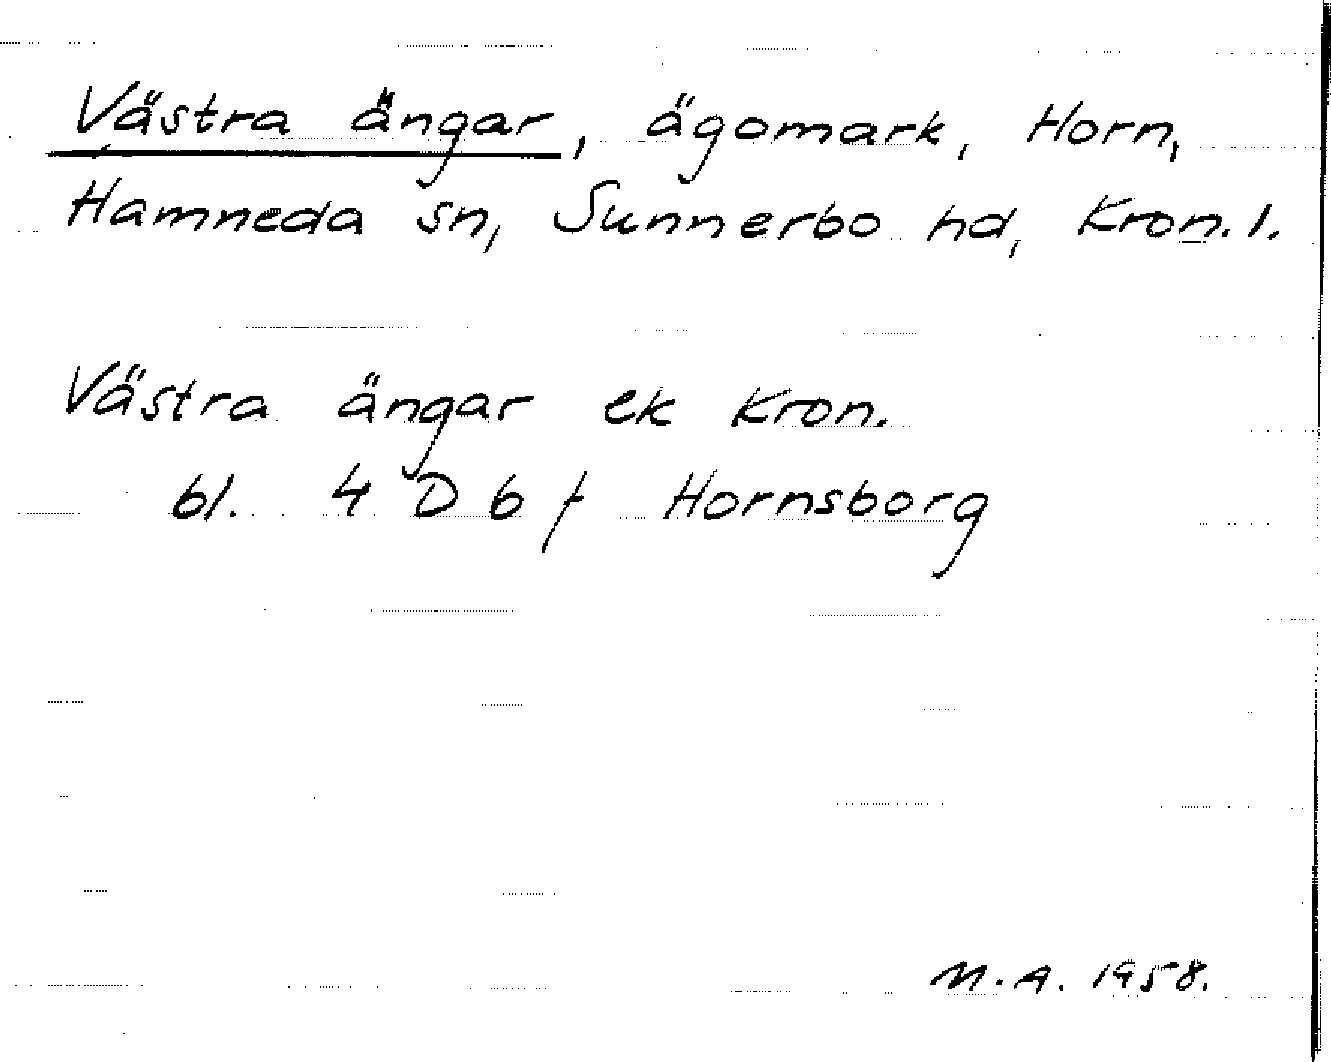 Västra ängar, ägomark, Horn,
Hamneda sn, Sunnerbo hd, Kron. l.
Västra ängar ek Kron.
bl. 4 D 6 f Hornsborg
M. A. 1958.